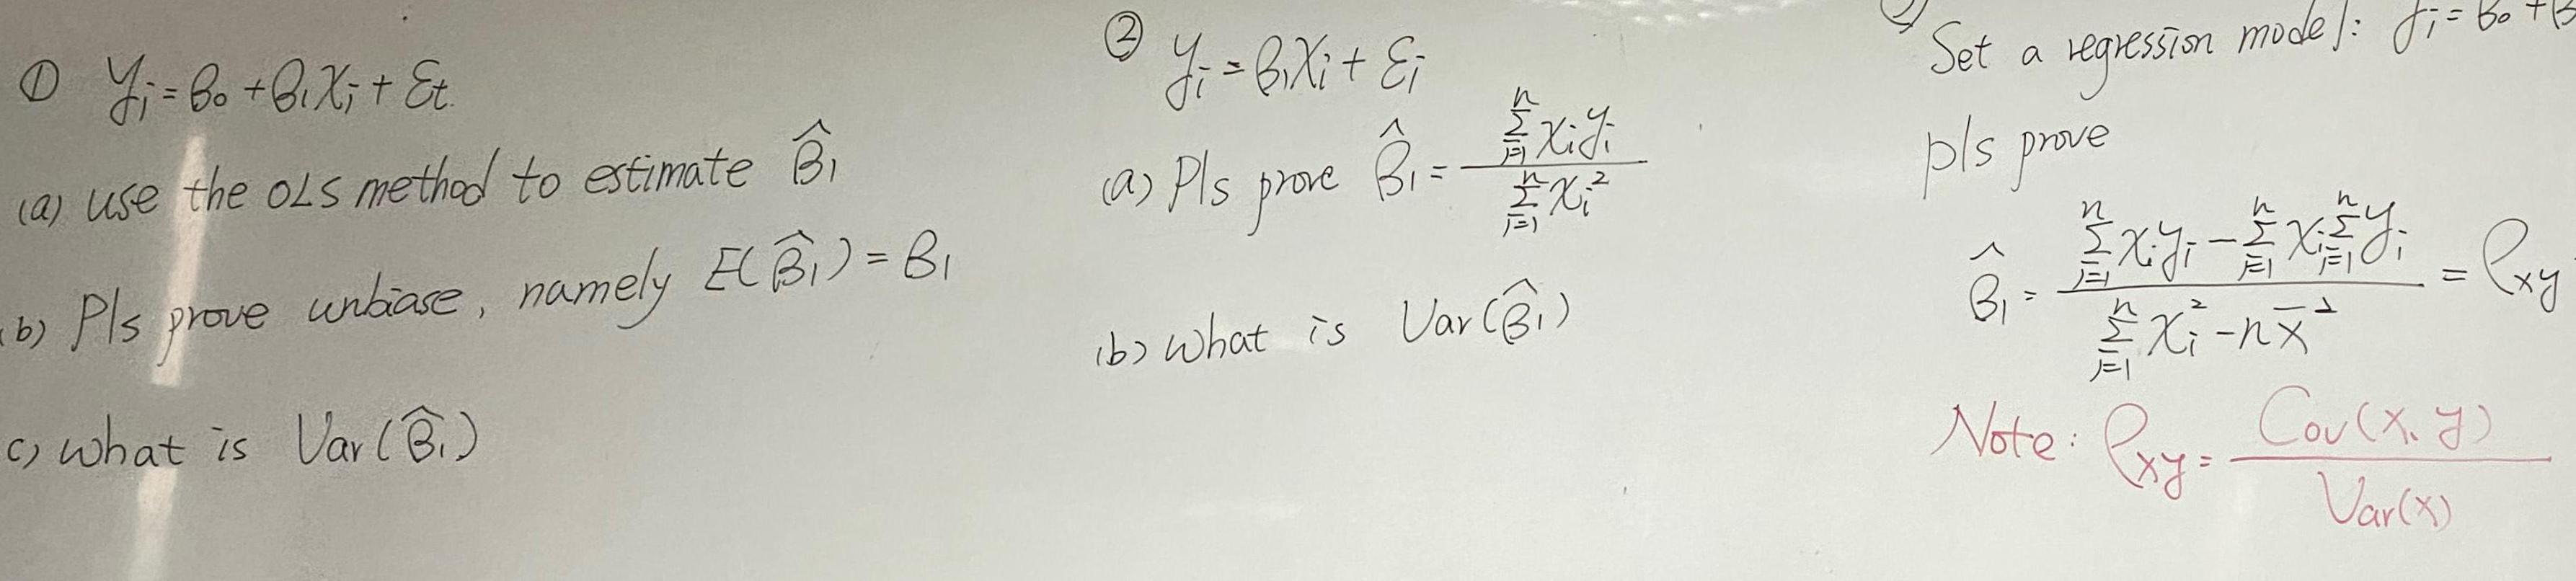 ① yi = β0 + β1Xi + εt
(a) use the OLS method to estimate β̂1
(b) Pls prove unbiase, namely E(β̂1) = β1
c) what is Var(β̂1)
② yi = β1Xi + εi
(a) Pls prove β̂1 = ∑_{i=1}^{n} xiyi / ∑_{i=1}^{n} xi²
(b) what is Var(β̂1)
Set a regression model: yi = β0 +
pls prove
β̂1 = (∑_{i=1}^{n} xiyi − ∑_{i=1}^{n} xi ∑_{i=1}^{n} yi) / (∑_{i=1}^{n} xi² − n x̄²) = ρxy
Note: ρxy = Cov(x, y) / Var(x)